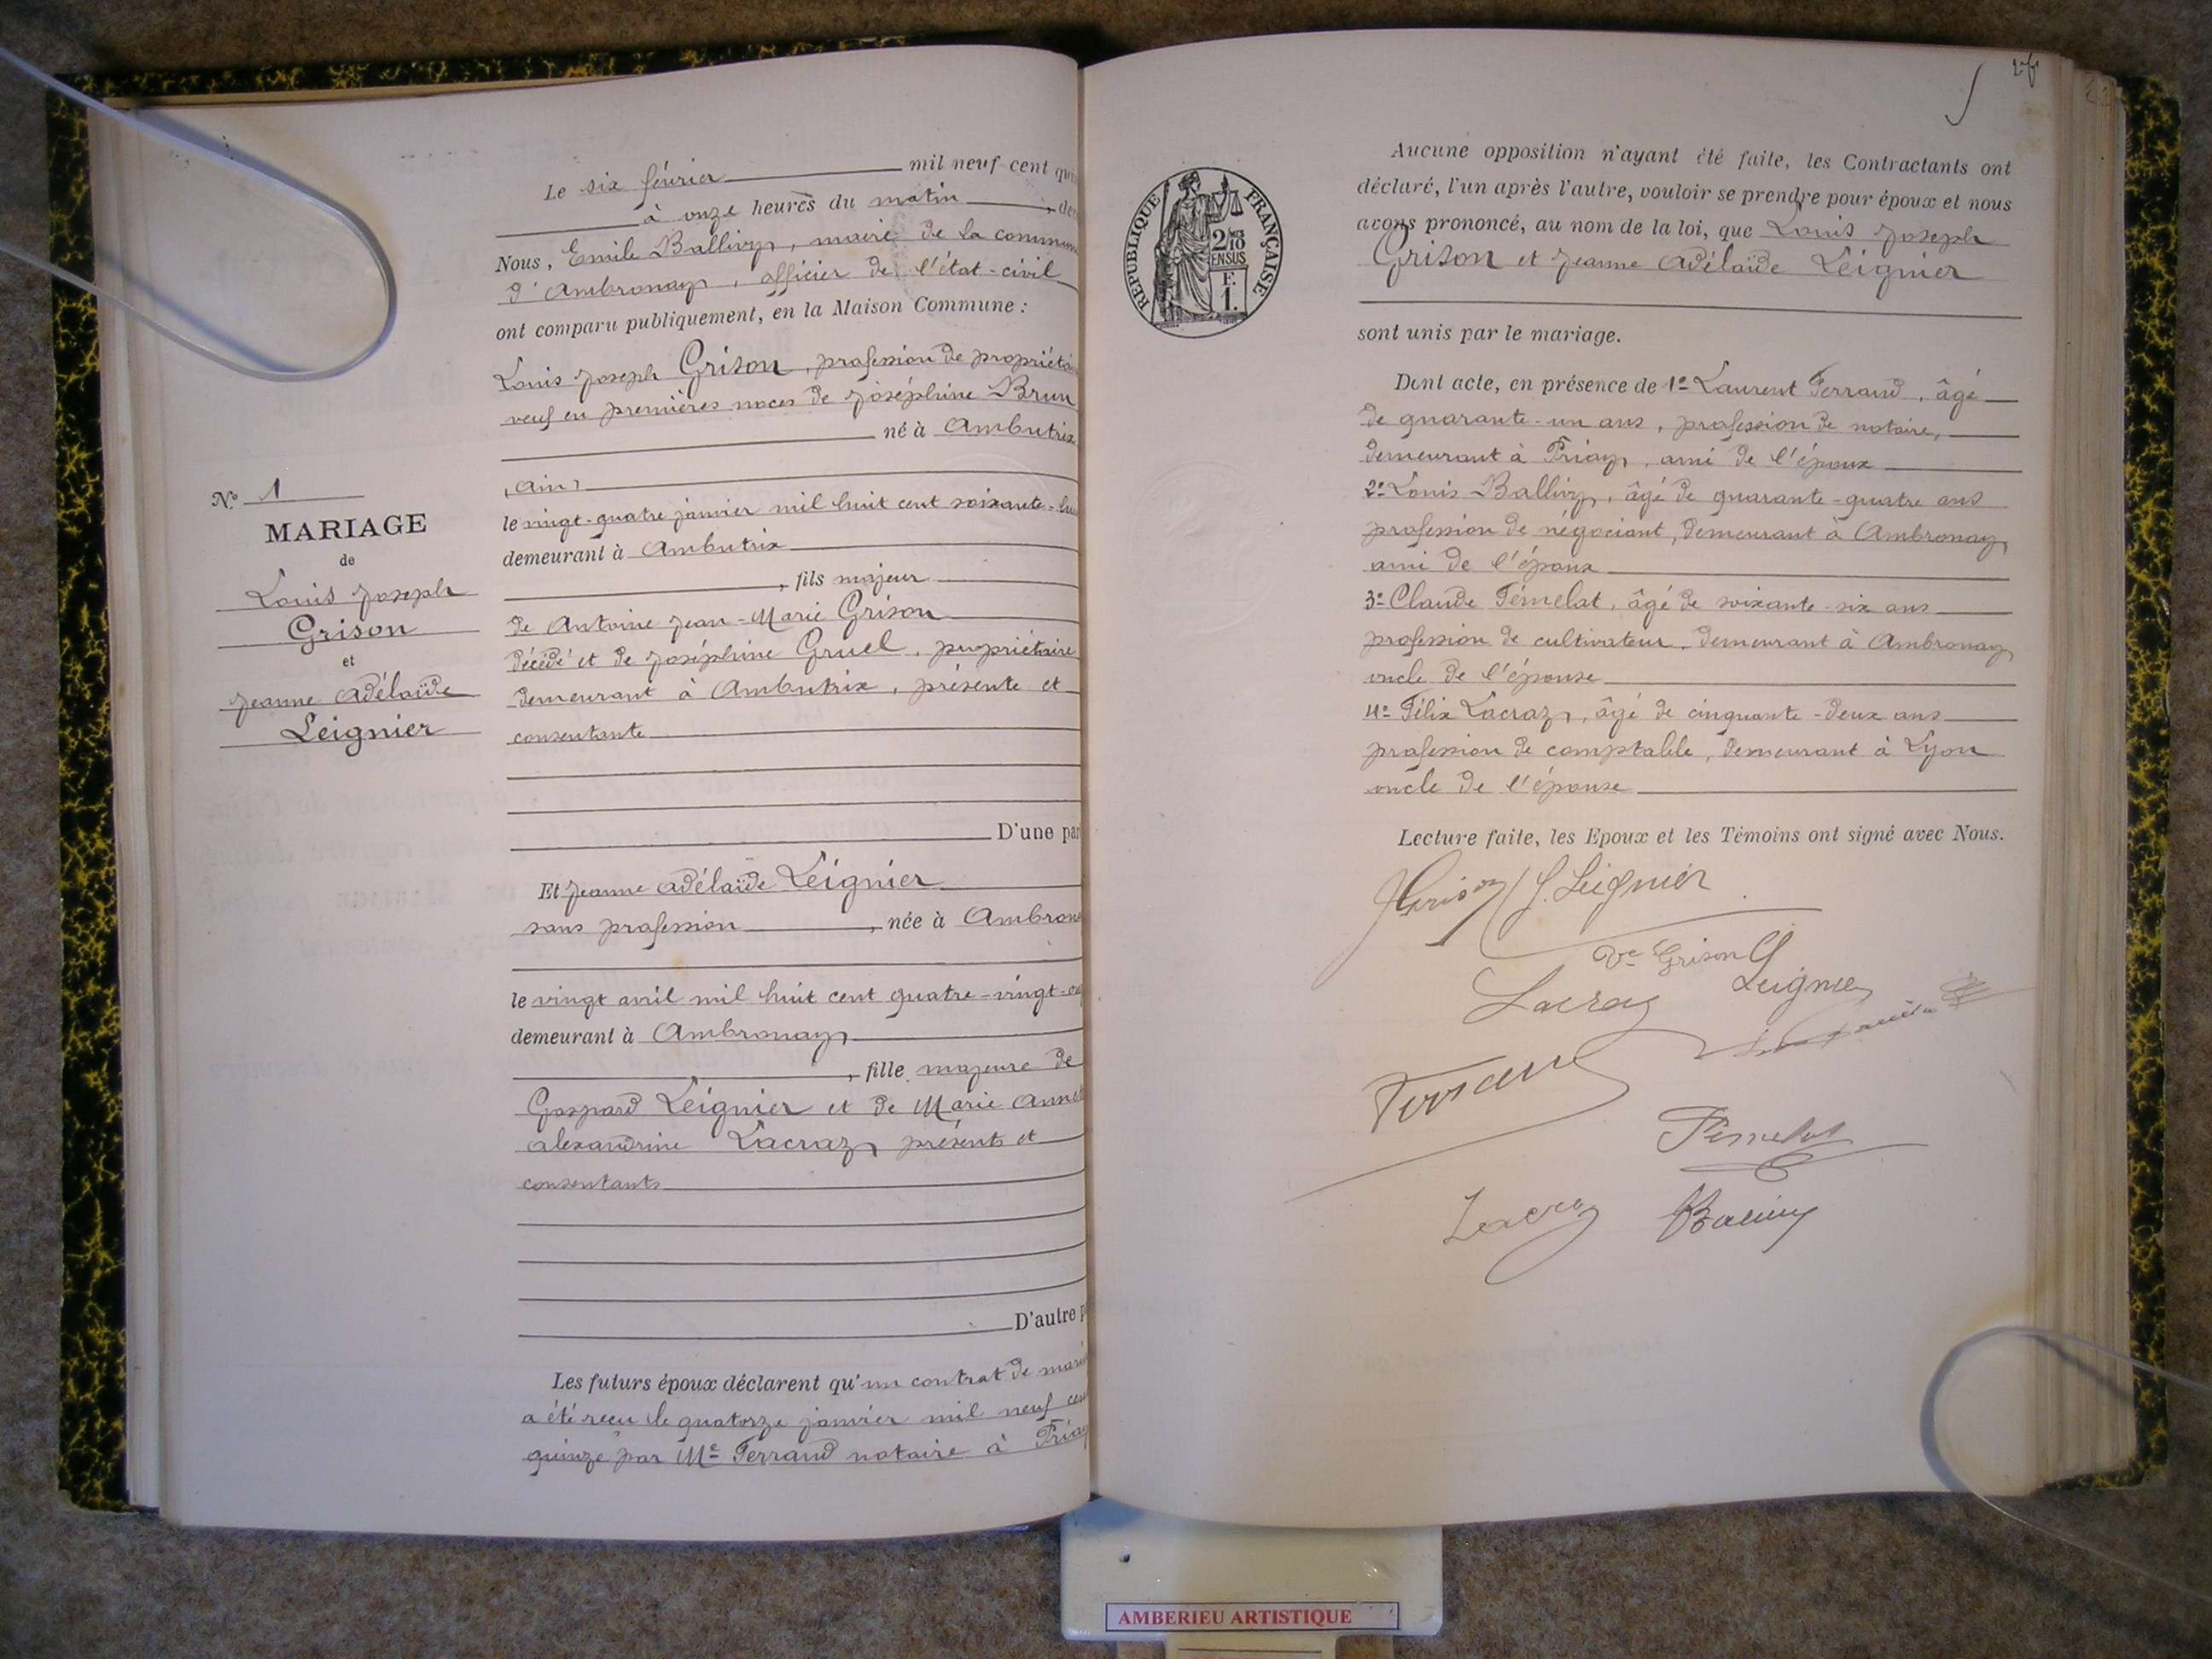 Le six février mil neuf cent
à onze heures du matin
Nous, Emile Ballivy, maire de la commune
d'Ambronay, officier de l'état-civil
ont comparu publiquement, en la Maison Commune :
Louis Joseph Grison, profession de propriétaire
veuf en premières noces de Joséphine Brun
né à Ambutrix
(Ain)
le vingt-quatre janvier mil huit cent soixante-
demeurant à Ambutrix
, fils majeur
de Antoine Jean-Marie Grison
décédé et de Joséphine Gruel, propriétaire
demeurant à Ambutrix, présente et
consentante
D'une par
Et Jeanne Adélaïde Leignier
sans profession, née à Ambrona
le vingt avril mil huit cent quatre-vingt-
demeurant à Ambronay
, fille majeure de
Gaspard Leignier et de Marie
Alexandrine Lacraz, présents et
consentants
D'autre p
Les futurs époux déclarent qu'un contrat de maria
a été reçu le quatorze janvier mil neuf cen
quinze par Me Ferrand notaire à Priay
N° 1
MARIAGE
de
Louis Joseph
Grison
et
Jeanne Adélaïde
Leignier
RÉPUBLIQUE FRANÇAISE
2/10
EN SUS
F.
1.
Aucune opposition n'ayant été faite, les Contractants ont
déclaré, l'un après l'autre, vouloir se prendre pour époux et nous
avons prononcé, au nom de la loi, que Louis Joseph
Grison et Jeanne Adélaïde Leignier
sont unis par le mariage.
Dont acte, en présence de 1° Laurent Ferrand, âgé
de quarante-un ans, profession de notaire,
demeurant à Priay, ami de l'époux
2° Louis Ballivy, âgé de quarante-quatre ans
profession de négociant, demeurant à Ambronay,
ami de l'époux
3° Claude Témelat, âgé de soixante-six ans
profession de cultivateur, demeurant à Ambronay
oncle de l'épouse
4° Félix Lacraz, âgé de cinquante-deux ans
profession de comptable, demeurant à Lyon
oncle de l'épouse
Lecture faite, les Epoux et les Témoins ont signé avec Nous.
Grison J. Leignier
Ve Grison G
Lacraz Leignier
Ferrand
Témelat
Lacraz Ballivy
AMBERIEU ARTISTIQUE